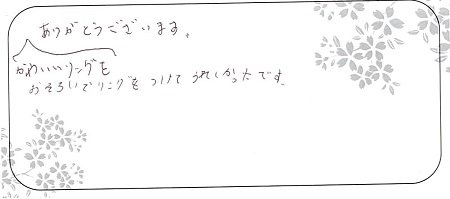 ありがとうございます。
かわいいリングを
おそろいでリングをつけてうれしかったです。